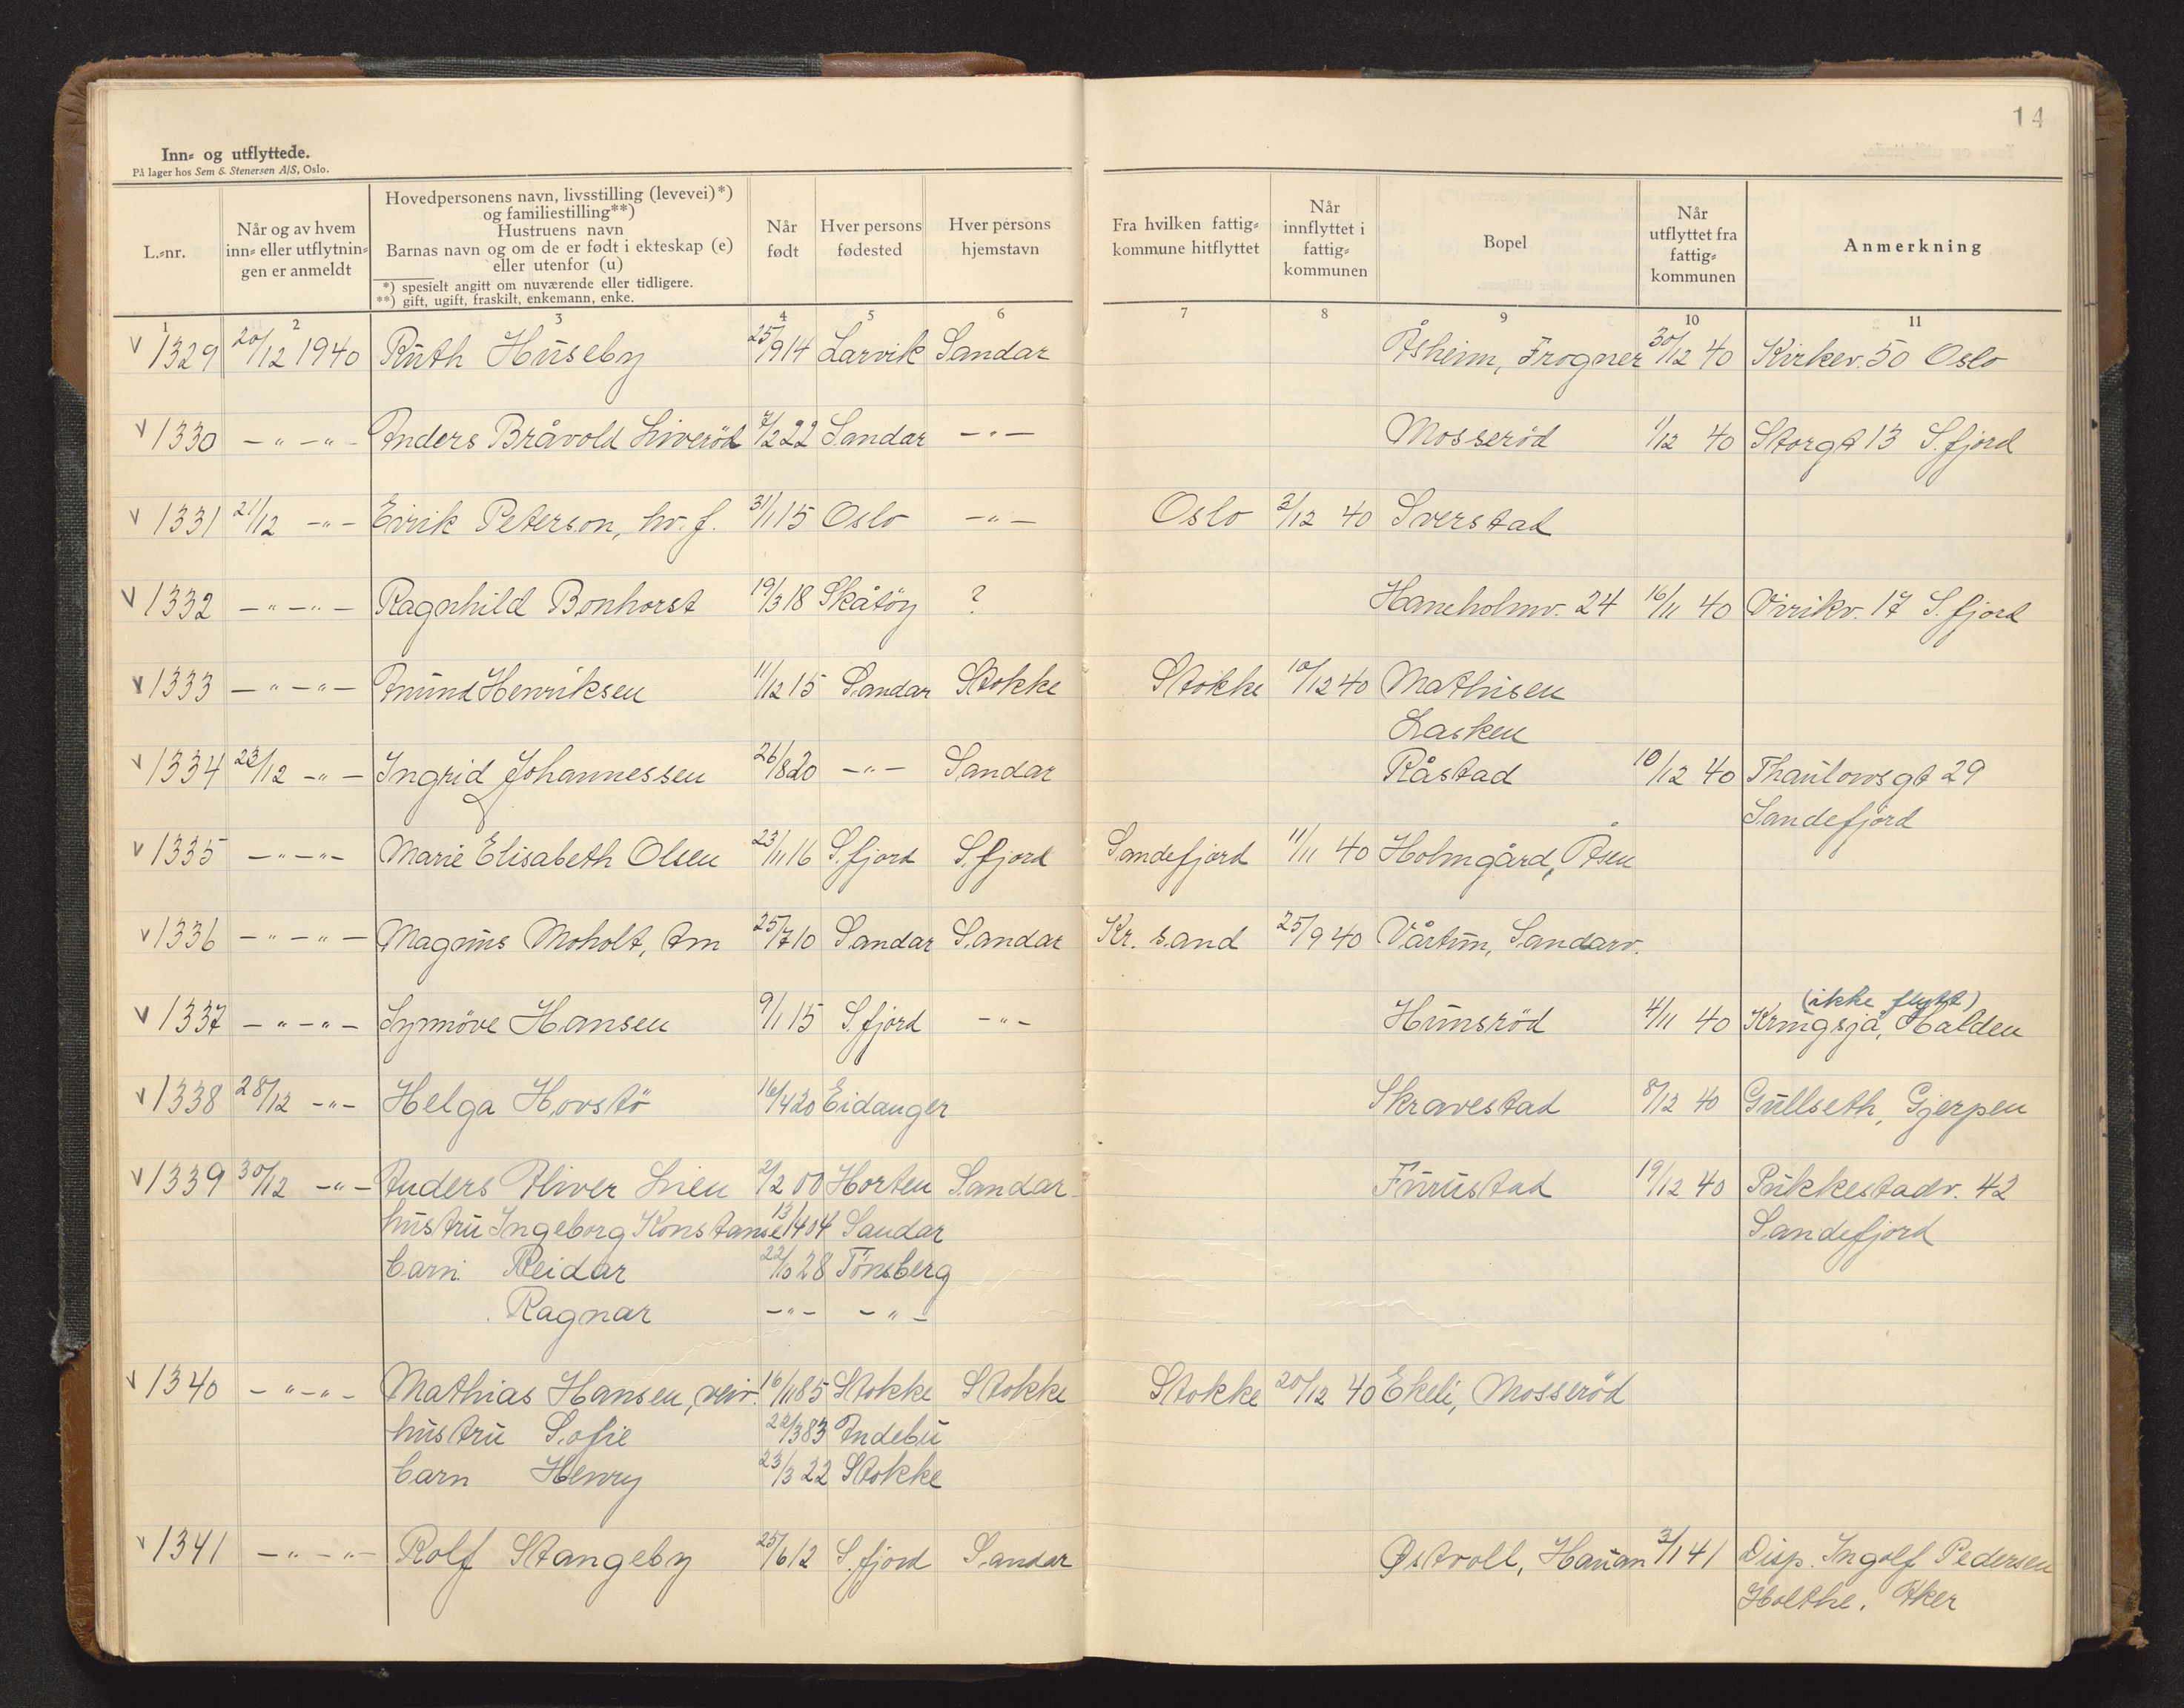 14
Inn- og utflyttede.
På lager hos Sem & Stenersen A/S, Oslo.
L.-nr.
Når og av hvem inn- eller utflytnin- gen er anmeldt
Hovedpersonens navn, livsstilling (levevei)*)
og familiestilling**)
Hustruens navn
Barnas navn og om de er født i ekteskap (e)
eller utenfor (u)
*) spesielt angitt om nuværende eller tidligere.
**) gift, ugift, fraskilt, enkemann, enke.
Når født
Hver persons fødested
Hver persons hjemstavn
Fra hvilken fattig- kommune hitflyttet
Når innflyttet i fattig- kommunen
Bopel
Når utflyttet fra fattig- kommunen
Anmerkning
1 2 3 4 5 6 7 8 9 10 11
v 1329 20/12 1940 Ruth Huseby 25/9 14 Larvik Sandar Åsheim, Frogner 30/12 40 Kirkev. 50 Oslo
v 1330 -"- -"- Anders Bråvold Liverød 7/2 22 Sandar -"- Mosserød 1/12 40 Storgt 13 S.fjord
v 1331 21/12 -"- Eirik Peterson, hv. f. 31/1 15 Oslo -"- Oslo 2/12 40 Sverstad
v 1332 -"- -"- Ragnhild Bonhorst 19/3 18 Skåtøy ? Haneholmv. 24 16/11 40 Virikv. 17 S.fjord
v 1333 -"- -"- Amund Henriksen 11/12 15 Sandar Stokke Stokke 10/12 40 Mathisen
Lasken
v 1334 23/12 -"- Ingrid Johannessen 26/8 20 -"- Sandar Råstad 10/12 40 Thaulowsgt 29
Sandefjord
v 1335 -"- -"- Marie Elisabeth Olsen 23/11 16 S.fjord S.fjord Sandefjord 11/11 40 Holmgård, Åsen
v 1336 -"- -"- Magnus Moholt, tm 25/7 10 Sandar Sandar Kr. sand 25/9 40 Vårtun, Sandarv.
(ikke flytt)
v 1337 -"- -"- Synnöve Hansen 9/1 15 S.fjord -"- Hunsrød 4/11 40 Kringsjå, Halden
v 1338 28/12 -"- Helga Hovstö 16/4 20 Eidanger Skravestad 8/12 40 Gullseth, Gjerpen
v 1339 30/12 -"- Anders Aliver Lien 2/2 00 Horten Sandar Furustad 19/12 40 Pukkestadv. 42
hustru Ingeborg Konstanse 13/4 04 Sandar Sandefjord
barn Reidar 22/10 28 Tönsberg
Ragnar -"- -"-
v 1340 -"- -"- Mathias Hansen, veiv. 16/11 85 Stokke Stokke Stokke 20/12 40 Ekeli, Mosserød
hustru Sofie 22/3 83 Andebu
barn Henry 23/3 22 Stokke
v 1341 -"- -"- Rolf Stangeby 25/6 12 S.fjord Sandar Østvoll, Hauan 3/1 41 Disp. Ingolf Pedersen
Holthe. Aker